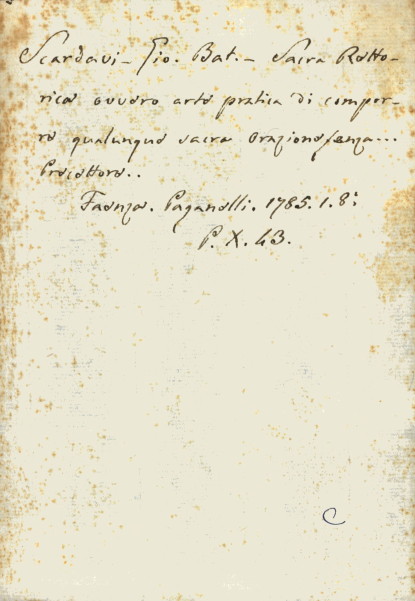 Scardavi - Gio. Bat. - Sacra Retto-
rica ovvero arte pratica di compor-
re qualunque sacra orazione senza...
Precettore..
Faenza. Paganelli. 1785. 1. 8:
P. X. 43.
C